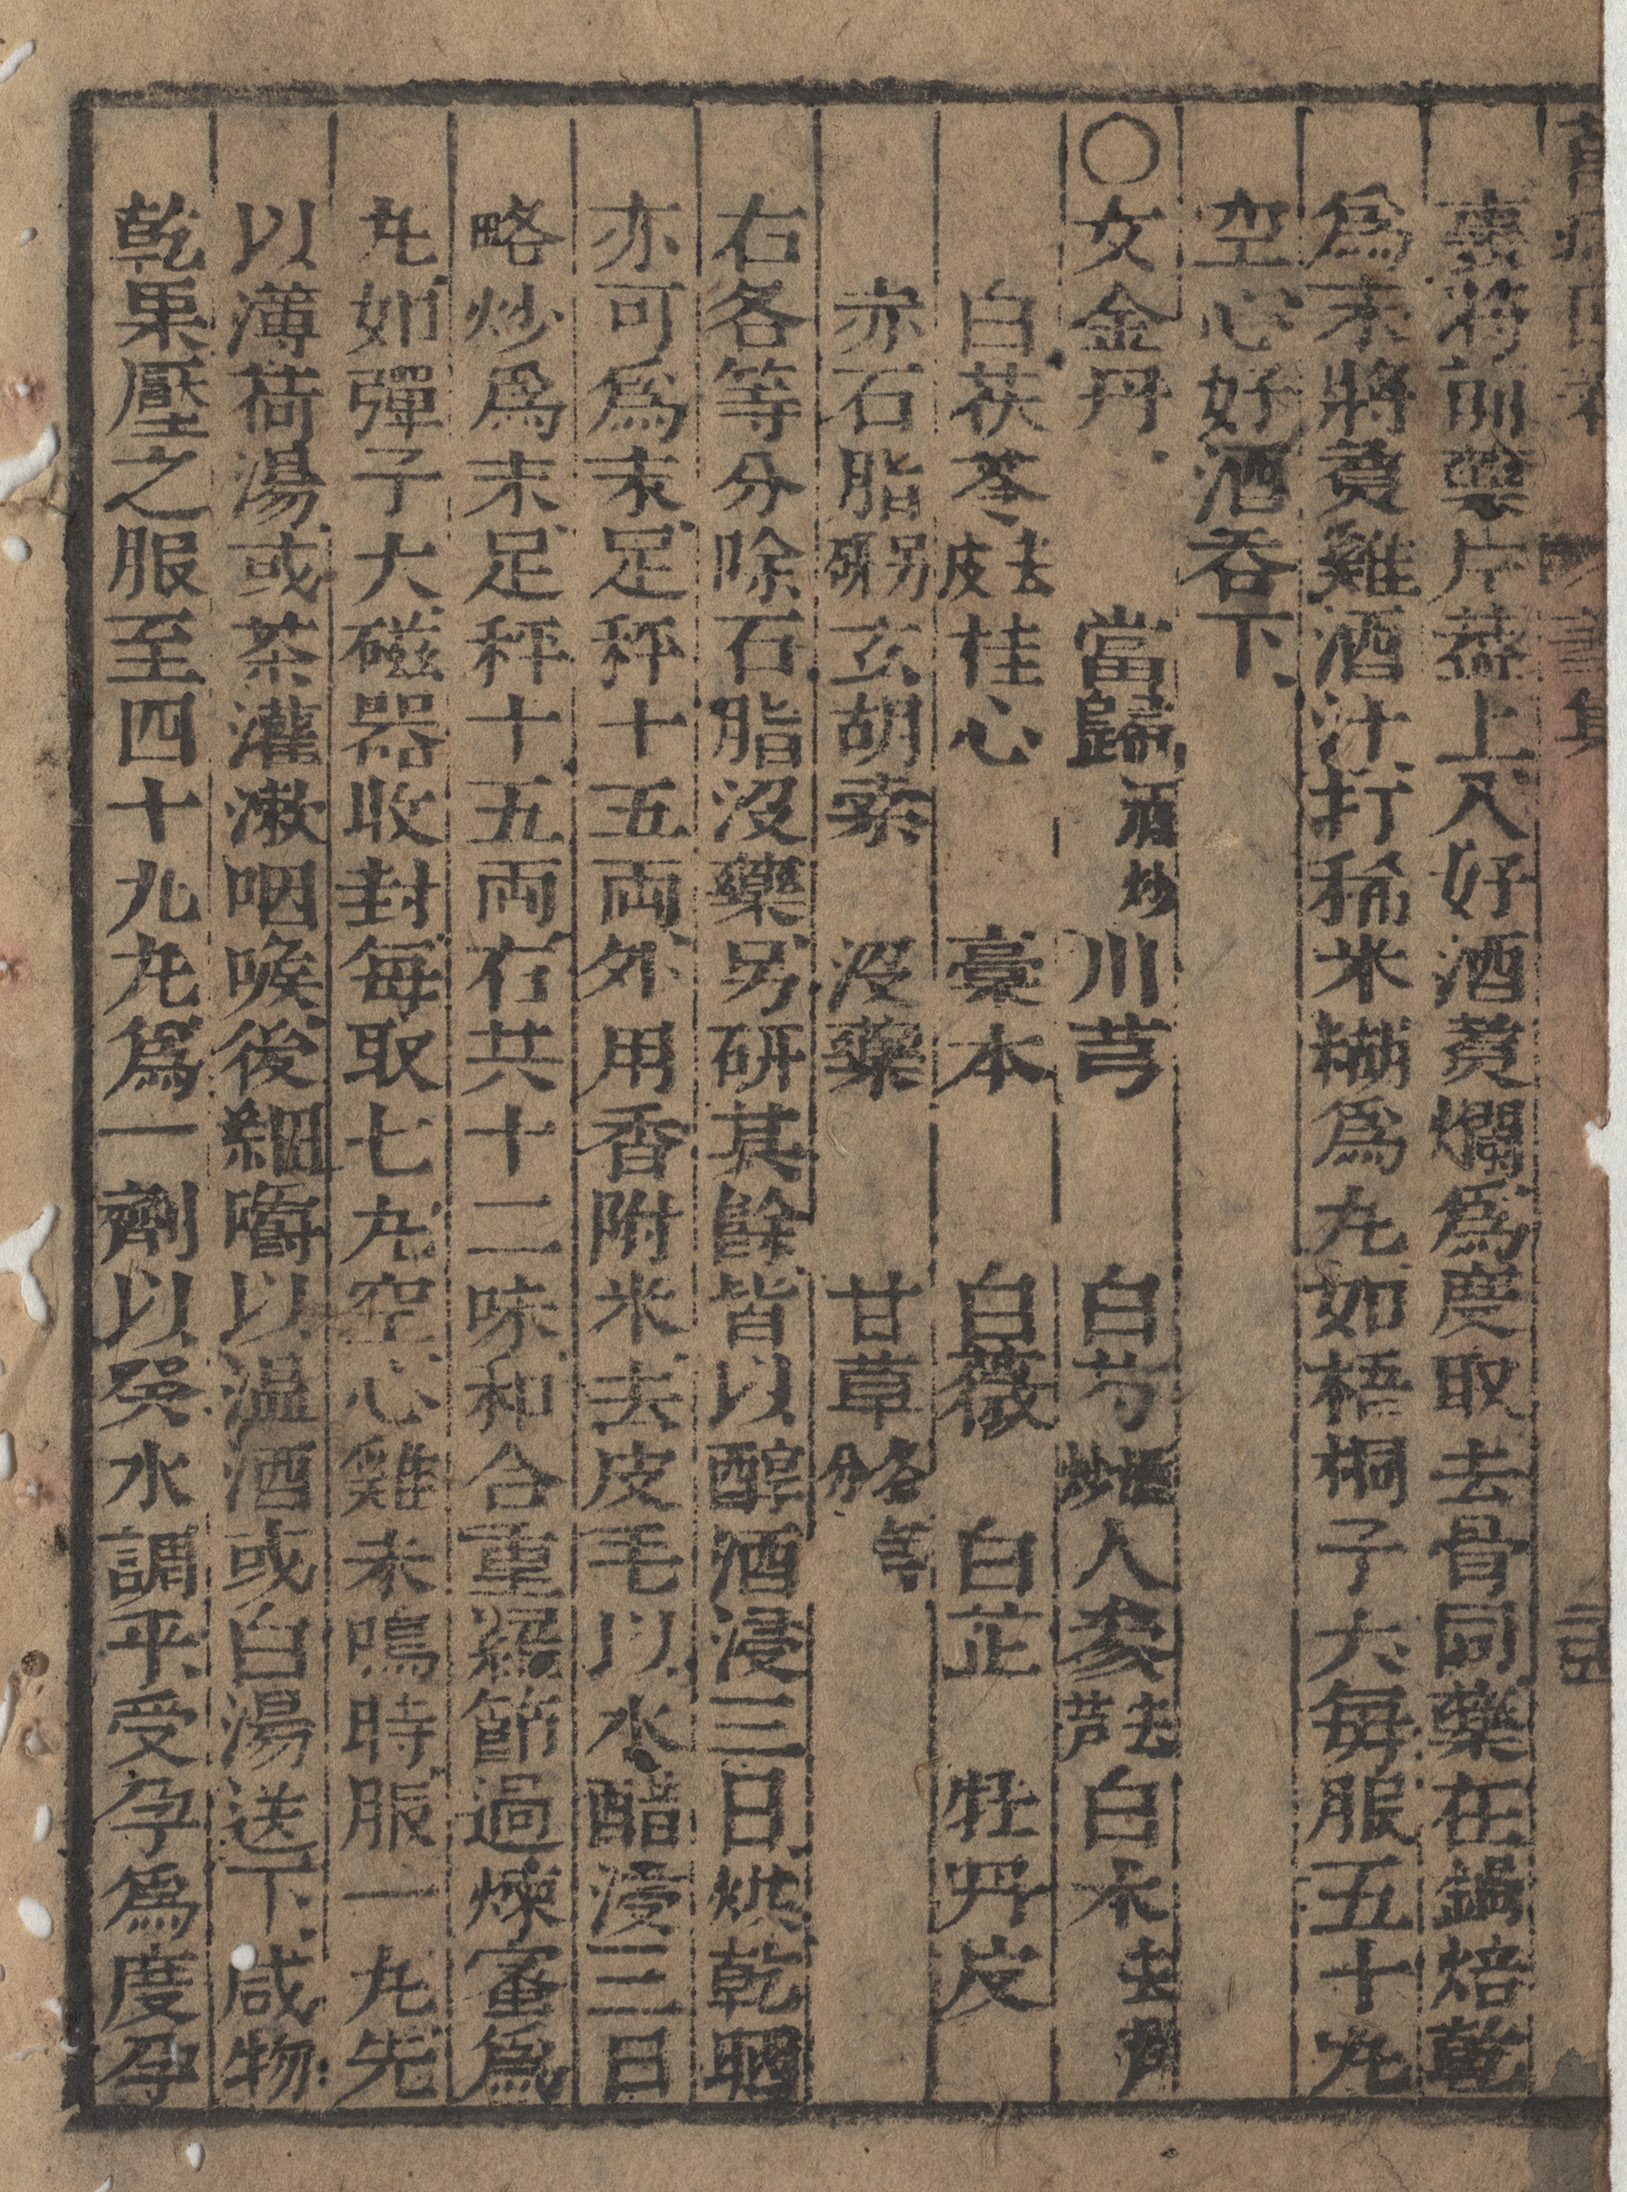 裏將前藥片蓋上入好酒煑爛爲度取去骨同藥在鍋焙乾
爲末將煑雞酒汁打稀米糊爲丸如梧桐子大每服五十丸
空心好酒吞下
〇女金丹 當歸酒炒川芎 白芍酒炒人參去芦白朮去蘆
白茯苓去皮桂心 藁本 白薇 白芷 牡丹皮
赤石脂另研玄胡索 沒藥 甘草各等分
右各等分除石脂沒藥另研其餘皆以醇酒浸三日烘乾晒
亦可爲末足秤十五両外用香附米去皮毛以水醋浸三日
略炒爲末足秤十五両右共十二味和合重羅節過煉蜜爲
丸如彈子大磁器收封每取七丸空心雞未鳴時服一丸先
以薄荷湯或茶灌漱咽喉後細嚼以温酒或白湯送下咸物
乾果壓之服至四十九丸爲一劑以癸水調平受孕爲度孕